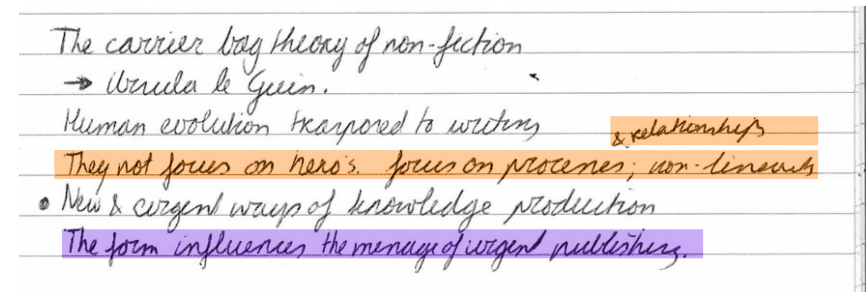 The carrier bag theory of non-fiction
→ Ursula le Guin.
Human evolution transpored to writing
& relationships
They not focus on hero's. focus on processes; non-linearity
• New & urgent ways of knowledge production
The form influences the message of urgent publishing.